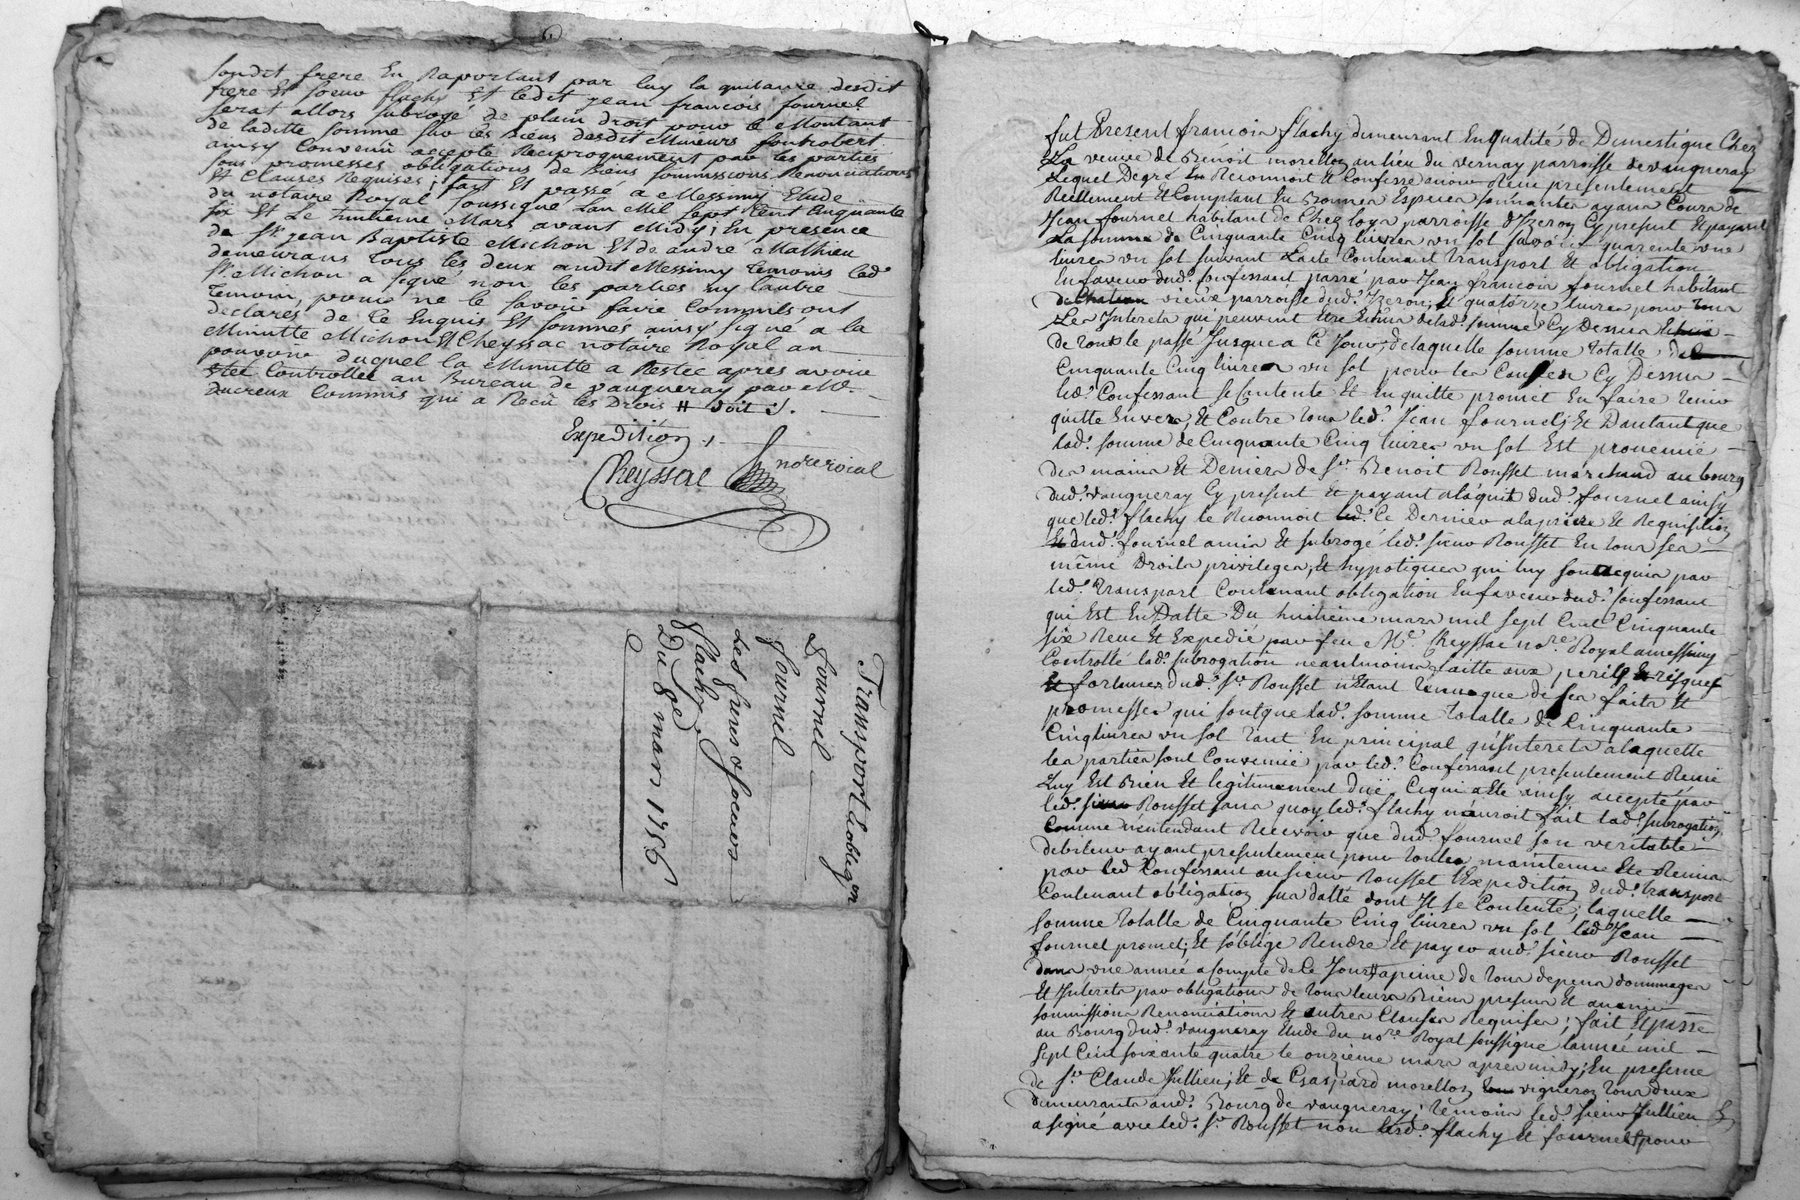 sondit frere En Raportant par luy la quitance desdit
frere Et soeur flachy Et ledit jean francois fournel
serat allors subrogé de plain droit pour le Montant
de laditte somme sur les Biens desdit Mineurs fontrobert
ainsy Convenu accepté Reciproquement par les parties
sous promesses obligations de Biens soumissions Renonciations
Et Clauses Requises ; fait Et passé a Messimy Etude
du notaire Royal soussigné Lan Mil sept Cent Cinquante
six Et Le huitieme Mars avant Midy ; En presence
de Sr jean Baptiste Michon Et de andré Mathieu
demeurans tous les deux audit Messimy temoins led.
Sr Michon a signé non les parties ny lautre
temoin, pour ne le savoir faire Comm'ils ont
declarés de Ce Enquis Et sommes ainsy signé a la
Minutte Michon Et Cheyssac notaire Royal au
pouvoir duquel la Minutte a Restée apres avoir
étée Controllée au Bureau de vaugneray par Mr
Ducreux Commis qui a Reçû les Droits
Expedition
Cheyssac nore roial
Transport & obligon
fournel
fournel
Les freres & soeurs
flachy
Du 8e mars 1756
fut Present francois flachy demeurant En qualité de Domestique Chez
La veuve de Benoit morellon au lieu du vernay parroisse de vaugneray
Lequel Degré Reconnoit Et Confesse avoir Recu presentement
Reellement Et Comptant En Bonnes Especes sonnantes ayans Cours de
Jean fournel habitant de Chez loya parroisse d'Yzeron Cy present Et payant
La somme de Cinquante Cinq livres un sol savoir quarente une
livres un sol suivant L'acte Contenant transport Et obligation
En faveur dud. Confessant passé par Jean francois fournel habitant
de Chateau vieux parroisse dud. Yzeron, Et quatorze livres pour tous
Les Interets qui peuvent Etre Echus de lad. somme Cy Dessus
de tout le passé Jusques a Ce Jour, de laquelle somme totalle de
Cinquante Cinq livres un sol pour les Causes Cy Dessus
led. Confessant se Contente Et En quitte promet En faire tenir
quitte Envers, Et Contre tous led. Jean fournel ; Et D'autant que
lad. somme de Cinquante Cinq livres un sol Est provenüe
des mains Et Deniers de Sr Benoit Rousset marchand au bourg
dud. vaugneray Cy present Et payant a láquit dud. fournel ainsy
que led. flachy le Reconnoit Ce Dernier a la priere Et Requisition
dud. fournel a mis Et subrogé led. sieur Rousset En tous ses
même Droits privileges, Et hypotiques qui luy sont acquis par
led. transport Contenant obligation En faveur dud. Confessant
qui Est En Datte Du huitieme mars mil sept Cent Cinquante
six Recu Et Expedié par feu Me Cheyssac nore Royal a messimy
Controllé lad. subrogation neantmoins faitte aux perils Et risques
Et fortunes dud. Sr Rousset n'Etant tenu que de ses faits Et
promesses qui sont que lad. somme totalle de Cinquante
Cinq livres un sol tant En principal qu'Interets a laquelle
les parties sont Convenüe par led. Confessant presentement Recüe
Luy Est Bien Et legitimement düe Ce qui a Eté ainsy accepté par
led. sieur Rousset sans quoy led. flachy n'auroit fait lad. subrogation,
Comme n'entendant Recevoir que dud. fournel son veritable
debiteur ayant presentement pour toutes maintenue Eté Remis
par led Confessant au sieur Rousset l'Expedition dud. transport
Contenant obligation sus datté dont Il se Contente, laquelle
somme totalle de Cinquante Cinq livres un sol led Jean
fournel promet, Et s'oblige Rendre Et payer aud. sieur Rousset
dans une année a Compte de Ce Jour a peine de tous depens dommages
Et Interets par obligations de tous leurs Biens presens Et avenir
soumissions Renonciations Et autres Clauses Requises ; fait Et passé
au Bourg dud. vaugneray Etude du nore Royal soussigné l'année mil
sept Cent soixante quatre le onzieme mars apres midy ; En presence
de Sr Claude Jullien, Et de Gaspard morellon vigneron tous deux
demeurants aud. Bourg de vaugneray, temoins led. sieur Jullien
a signé avec led. Sr Rousset non lesd. flachy Et fournel pour